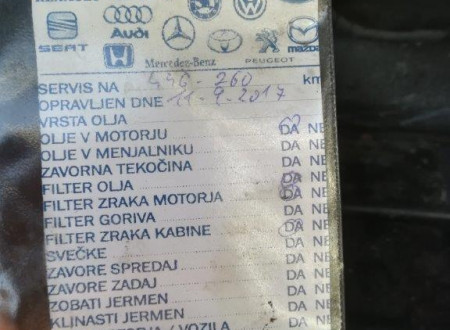 SEAT
Audi
Mercedes-Benz
PEUGEOT
mazda
SERVIS NA 446-260 km
OPRAVLJEN DNE 11-9-2017
VRSTA OLJA
OLJE V MOTORJU DA NE
OLJE V MENJALNIKU DA NE
ZAVORNA TEKOČINA DA NE
FILTER OLJA DA NE
FILTER ZRAKA MOTORJA DA NE
FILTER GORIVA DA NE
FILTER ZRAKA KABINE DA NE
SVEČKE DA NE
ZAVORE SPREDAJ DA NE
ZAVORE ZADAJ DA NE
ZOBATI JERMEN DA NE
KLJNASTI JERMEN DA NE
/ VOZILA